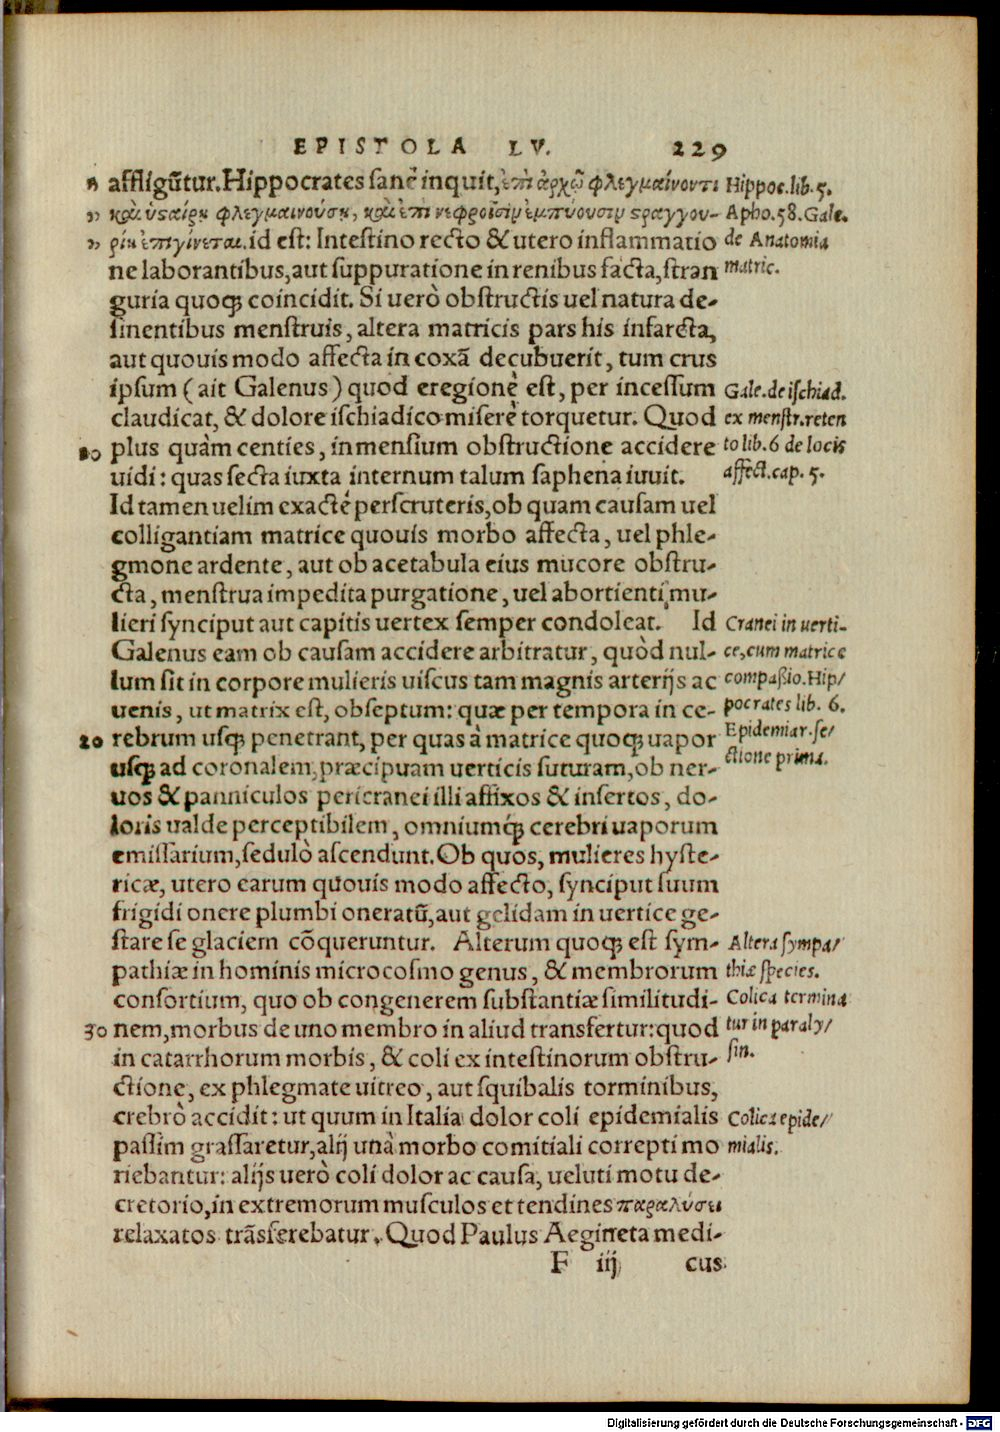 EPISTOLA LV. 229
affligũtur. Hippocrates sanè inquit, ἐπὶ ἀρχῷ φλεγμαίνοντι
καὶ ὑϛαίρῃ φλεγμαινούσῃ, καὶ ἐπὶ νεφροῖσιμ ἐμπύουσιμ ϛραγγου-
ρίη ἐπιγίνεται. id est: Intestino recto & utero inflammatio
ne laborantibus, aut suppuratione in renibus facta, stran
guria quoqȝ coincidit. Si uerò obstructis uel natura de-
sinentibus menstruis, altera matricis pars his infarcta,
aut quouis modo affecta in coxã decubuerit, tum crus
ipsum (ait Galenus) quod eregionè est, per incessum
claudicat, & dolore ischiadico miserè torquetur. Quod
10 plus quàm centies, in mensium obstructione accidere
uidi: quas secta iuxta internum talum saphena iuuit.
Id tamen uelim exactè perscruteris, ob quam causam uel
colligantiam matrice quouis morbo affecta, uel phle-
gmone ardente, aut ob acetabula eius mucore obstru-
cta, menstrua impedita purgatione, uel abortienti mu-
lieri synciput aut capitis uertex semper condoleat. Id
Galenus eam ob causam accidere arbitratur, quòd nul-
lum sit in corpore mulieris uiscus tam magnis arterijs ac
uenis, ut matrix est, obseptum: quæ per tempora in ce-
20 rebrum usqȝ penetrant, per quas à matrice quoqȝ uapor
usqȝ ad coronalem, præcipuam uerticis suturam, ob ner-
uos & panniculos pericranei illi affixos & insertos, do-
loris ualde perceptibilem, omniumqȝ́ cerebri uaporum
emissarium, sedulò ascendunt. Ob quos, mulieres hyste-
ricæ, utero earum quouis modo affecto, synciput suum
frigidi onere plumbi oneratũ, aut gelidam in uertice ge-
stare se glaciem cõqueruntur. Alterum quoqȝ est sym-
pathiæ in hominis microcosmo genus, & membrorum
consortium, quo ob congenerem substantiæ similitudi-
30 nem, morbus de uno membro in aliud transfertur: quod
in catarrhorum morbis, & coli ex intestinorum obstru-
ctione, ex phlegmate uitreo, aut squibalis torminibus,
crebrò accidit: ut quum in Italia dolor coli epidemialis
passim grassaretur, alij unà morbo comitiali correpti mo
riebantur: alijs uerò coli dolor ac causa, ueluti motu de-
cretorio, in extremorum musculos et tendines παραλύσει
relaxatos trãsferebatur. Quod Paulus Aegineta medi-
F iij cus
Hippoc. lib. 5.
Apho. 58. Gale.
de Anatomia
matric.
Gale. de ischiad.
ex menstr. reten
to lib. 6 de locis
affect. cap. 5.
Cranei in uerti-
ce, cum matrice
compaßio. Hip/
pocrates lib. 6.
Epidemiar. se/
ctione prima.
Altera sympa/
thiæ species.
Colica termina
tur in paraly/
sin.
Colica epide/
mialis.
Digitalisierung gefördert durch die Deutsche Forschungsgemeinschaft - DFG